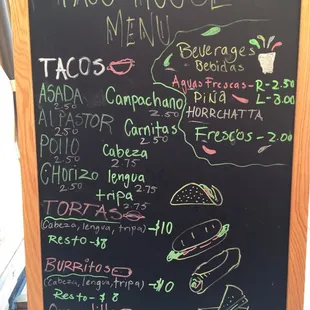 TACO HOUSE
MENU
TACOS
ASADA
2.50
Al PASTOR
2.50
Pollo
2.50
CHORIZO
2.50
Campachano
2.50
Carnitas
2.50
Cabeza
2.75
lengua
2.75
tripa
2.75
Beverages
Bebidas
Aguas Frescas- R-2.50
PIÑA L-3.00
HORRCHATTA
Frescos - 2.00
TORTAS
(Cabeza, lengua, tripa) - $10
Resto-$8
BURRITOS
(Cabeza, lengua, tripa) - $10
Resto - $8